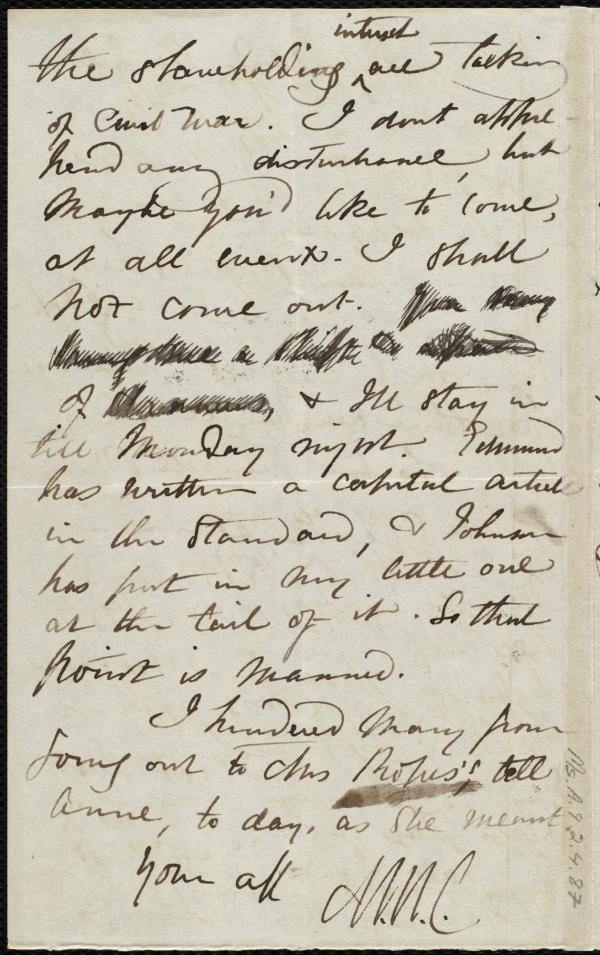 interest
the slaveholding ^ are talking
of Civil War. I dont appre
hend any disturbance, but
Maybe you'd like to come,
at all events. I shall
not come out.
of & I'll stay in
till Monday night. Edmund
has written a capital article
in the Standard, & Johnson
has put in my little one
at the tail of it. So that
point is manned.
I hindered Mary from
going out to Mrs Ropes's, tell
Anne, to day, as she meant
Your aff
M.W.C.
Ms.A.9.2.4.87